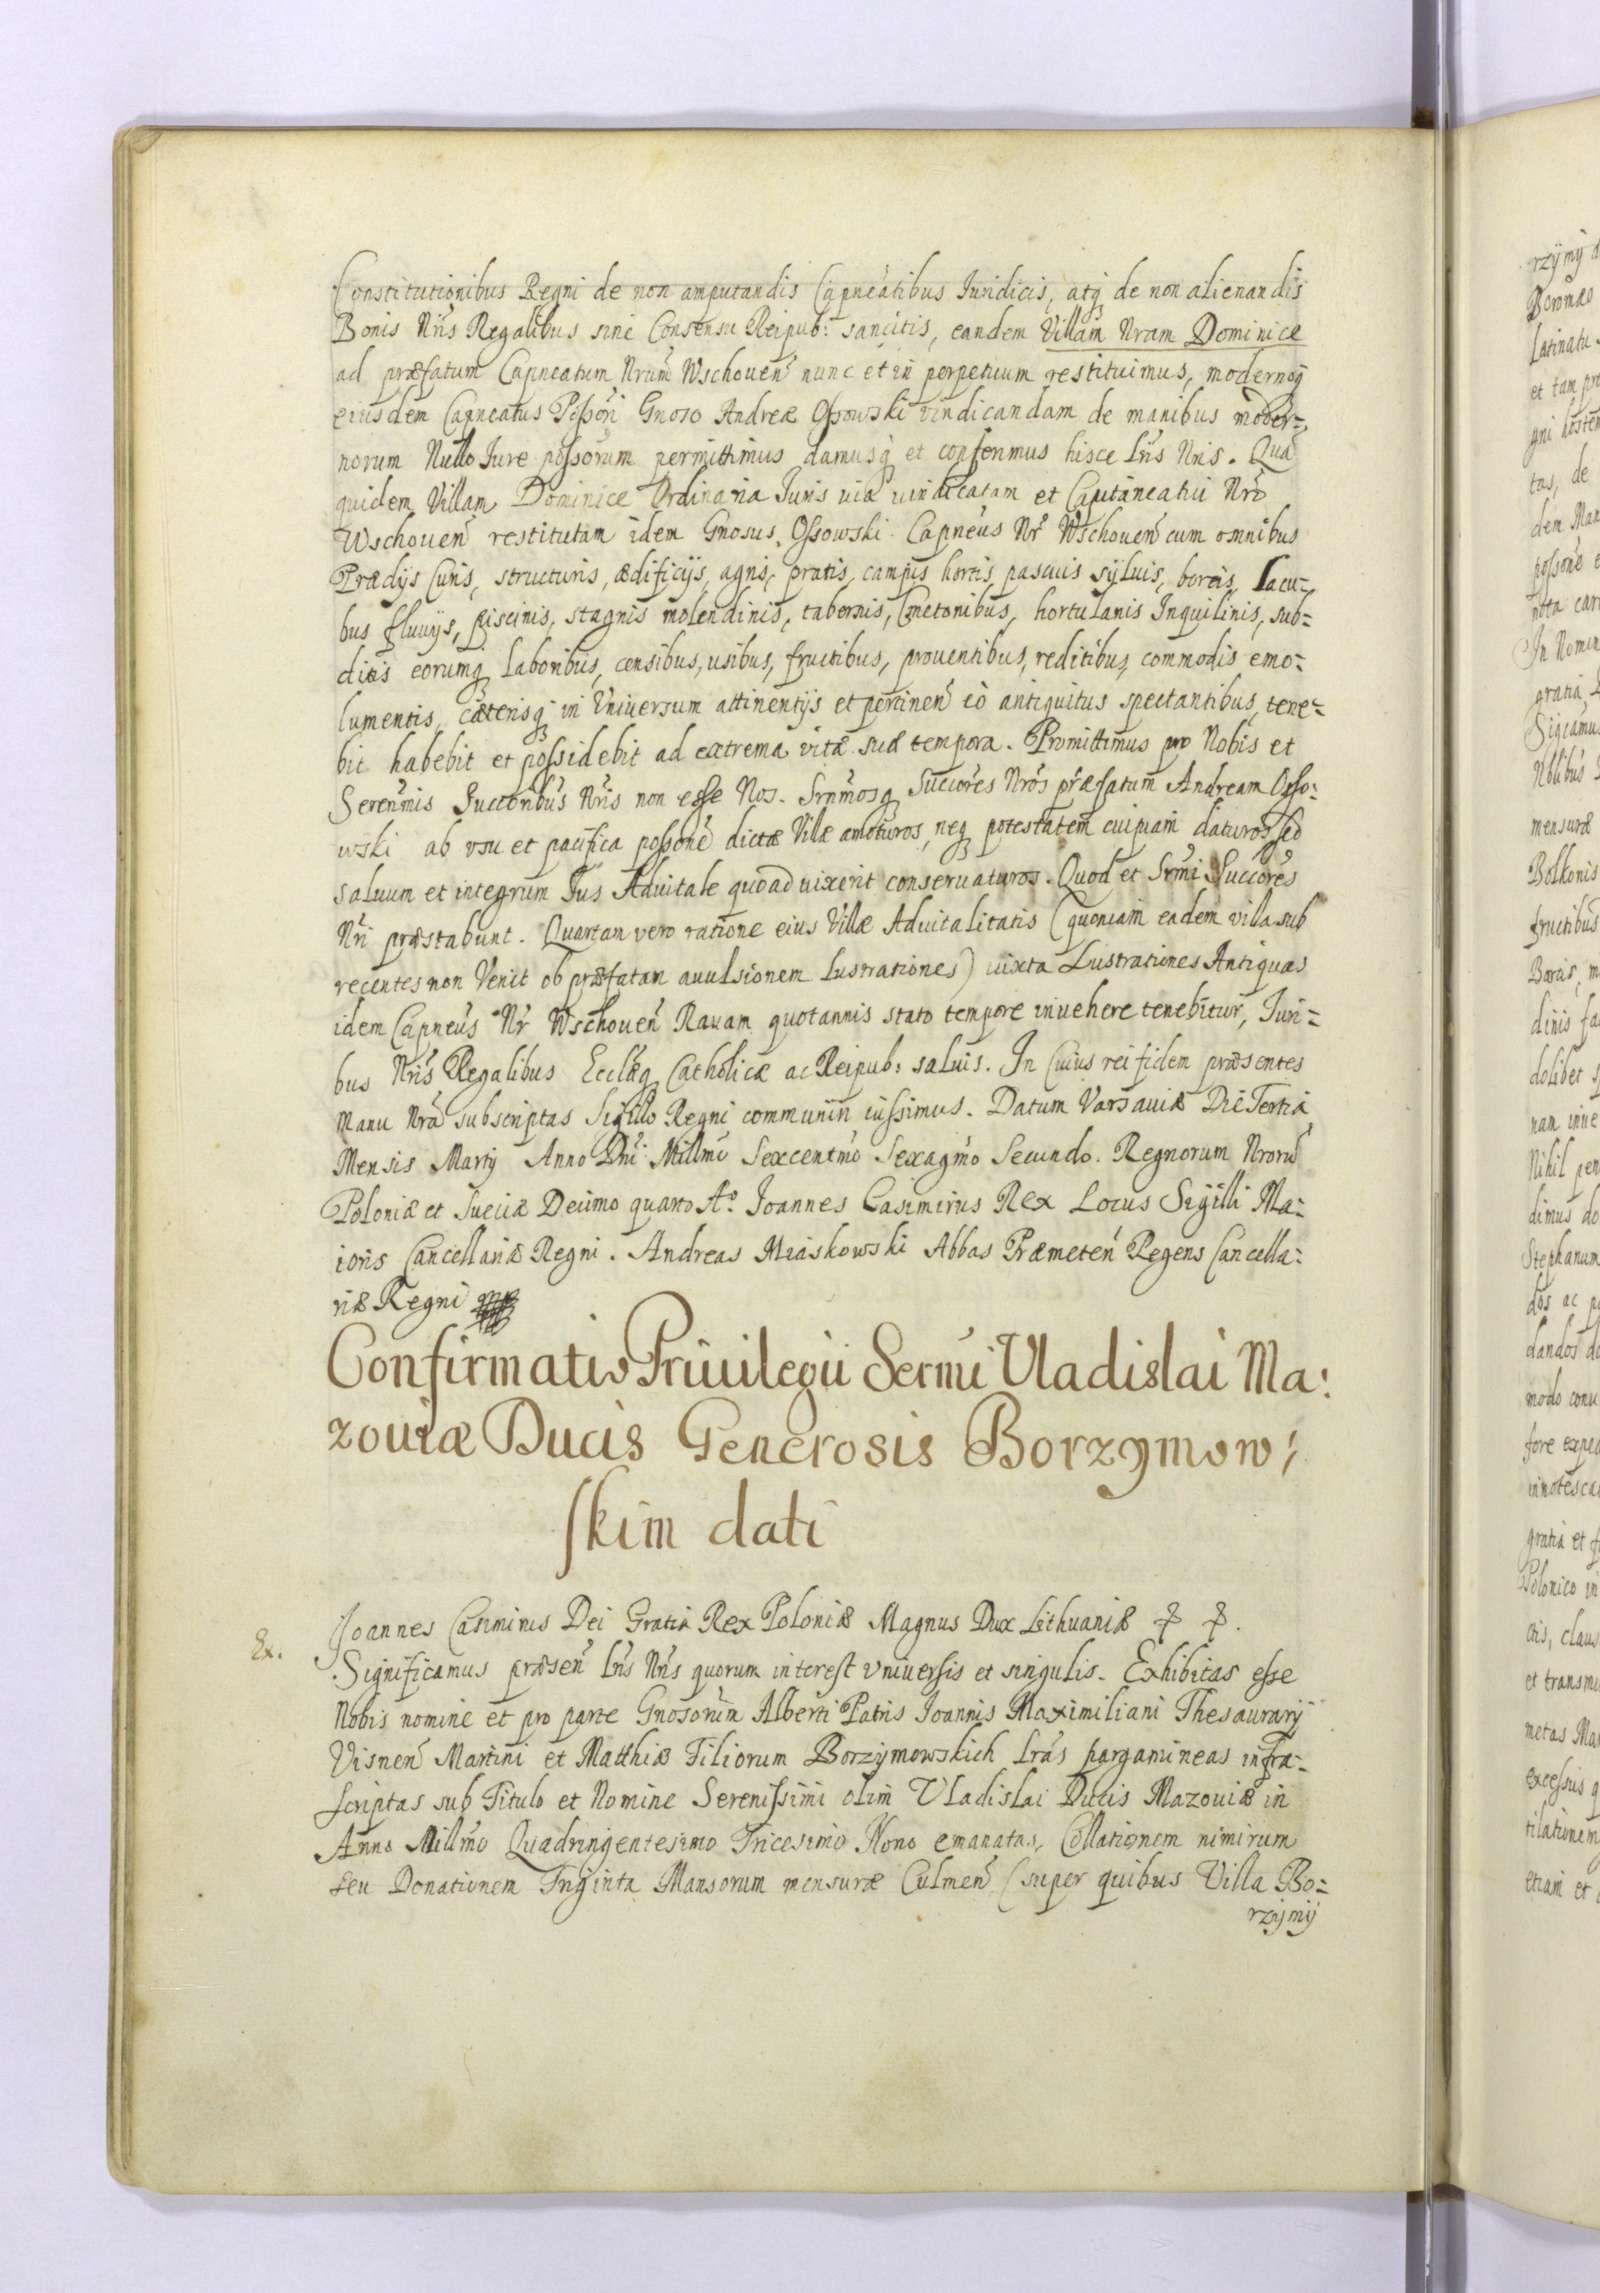 Constitutionibus Regni de non amputandis Capneatibus Iuridicis, atq de non alienandis
Bonis Nris Regalibus sine Consensu Reipub: sancitis, eandem Villam Nram Dominice
ad præfatum Capneatum Nrum Wschouen nunc et in perpetuum restituimus, modernoq
eiusdem Capneatus Possori Gnoso Andreæ Ossowski vindicandam de manibus moder-
norum Nullo Iure possorum permittimus damusq et conferimus hisce Lris Nris. Qua
quidem Villam Dominice Ordinaria Iuris uia uindicatam et Capitaneatui Nro
Wschouen restitutam idem Gnosus Ossowski Capneus Nr Wschouen cum omnibus
Prædijs Curis, structuris, ædificijs, agris, pratis, campis hortis, pascuis syluis, boreis, Lacu-
bus fluuijs, piscinis, stagnis molendinis, tabernis, Cmetonibus, hortulanis Inquilinis, sub-
ditis eorumq laboribus, censibus, usibus, fructibus, prouentibus, reditibus, commodis emo-
lumentis, cæterisq in Vniuersum attinentijs et pertinen eo antiquitus spectantibus, tene-
bit habebit et possidebit ad extrema vitæ suæ tempora. Promittimus pro Nobis et
Serenmis Succoribus Nris non esse Nos. Srnmosq Succores Nros præfatum Andream Osso-
wski ab vsu et pacifica possone dictæ Villæ amoturos, neq potestatem cuipiam daturos sed
saluum et integrum Ius Aduitale quoad uixerit conseruaturos. Quod et Srmi Succores
Nri præstabunt. Quartam vero ratione eius Villæ Aduitalitatis (quoniam eadem villa sub
recentes non Venit ob præfatam auulsionem Lustrationes) iuxta Lustrationes Antiquas
idem Capneus Nr Wschouen Rauam quotannis stato tempore inuehere tenebitur, Iuri-
bus Nris Regalibus Eccleq Catholicæ ac Reipub: saluis. In Cuius rei fidem præsentes
Manu Nra subscriptas Sigillo Regni communiri iussimus. Datum Varsauiæ Die Tertia
Mensis Martij Anno Dni Millmo Sexcentmo Sexagmo Secundo. Regnorum Nroru
Poloniæ et Sueciæ Decimo quarto Ao. Ioannes Casimirus Rex Locus Sigilli Ma-
ioris Cancellariæ Regni. Andreas Miaskowski Abbas Præmeten Regens Cancella-
riæ Regni
Confirmatio Priuilegii Sermi Vladislai Ma:
zouiæ Ducis Generosis Borzymow:
skim dati
Ex.
Ioannes Casimirus Dei Gratia Rex Poloniæ Magnus Dux Lithuaniæ
Significamus præsen Lris Nris quorum interest vniuersis et singulis. Exhibitas esse
Nobis nomine et pro parte Gnosorum Alberti Patris Ioannis Maximiliani Thesaurarij
Visnen Martini et Matthiæ Filiorum Borzymowskich Lras pargamineas infra-
scriptas sub Titulo et Nomine Serenissimi olim Vladislai Ducis Mazouiæ in
Anno Millmo Quadringentesimo Tricesimo Nono emanatas, Collationem nimirum
seu Donationem Triginta Mansorum mensuræ Culmen (super quibus Villa Bo-
rzijmij